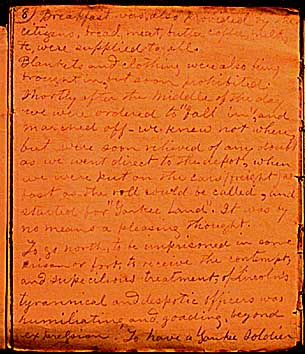 8) Breakfast was also provided by the
citizens, bread, meat, butter coffee, milk
&c, were supplied to all.
Blankets and clothing were also being
brought in, but soon prohibited.
Shortly after the middle of the day
we were ordered to "fall in", and
marched off - we knew not where,
but were soon relieved of any doubt
as we went direct to the depot, when
we were put on the cars, freight, as
fast as the roll could be called, and
started for "Yankee Land". It was by
no means a pleasing thought.
To go north, to be imprisoned in some
prison or fort, to receive the contempt,
and supercilious treatment, of Lincoln's
tyrannical and despotic officers was
humiliating, and goading, beyond
expression. To have a Yankee Soldier